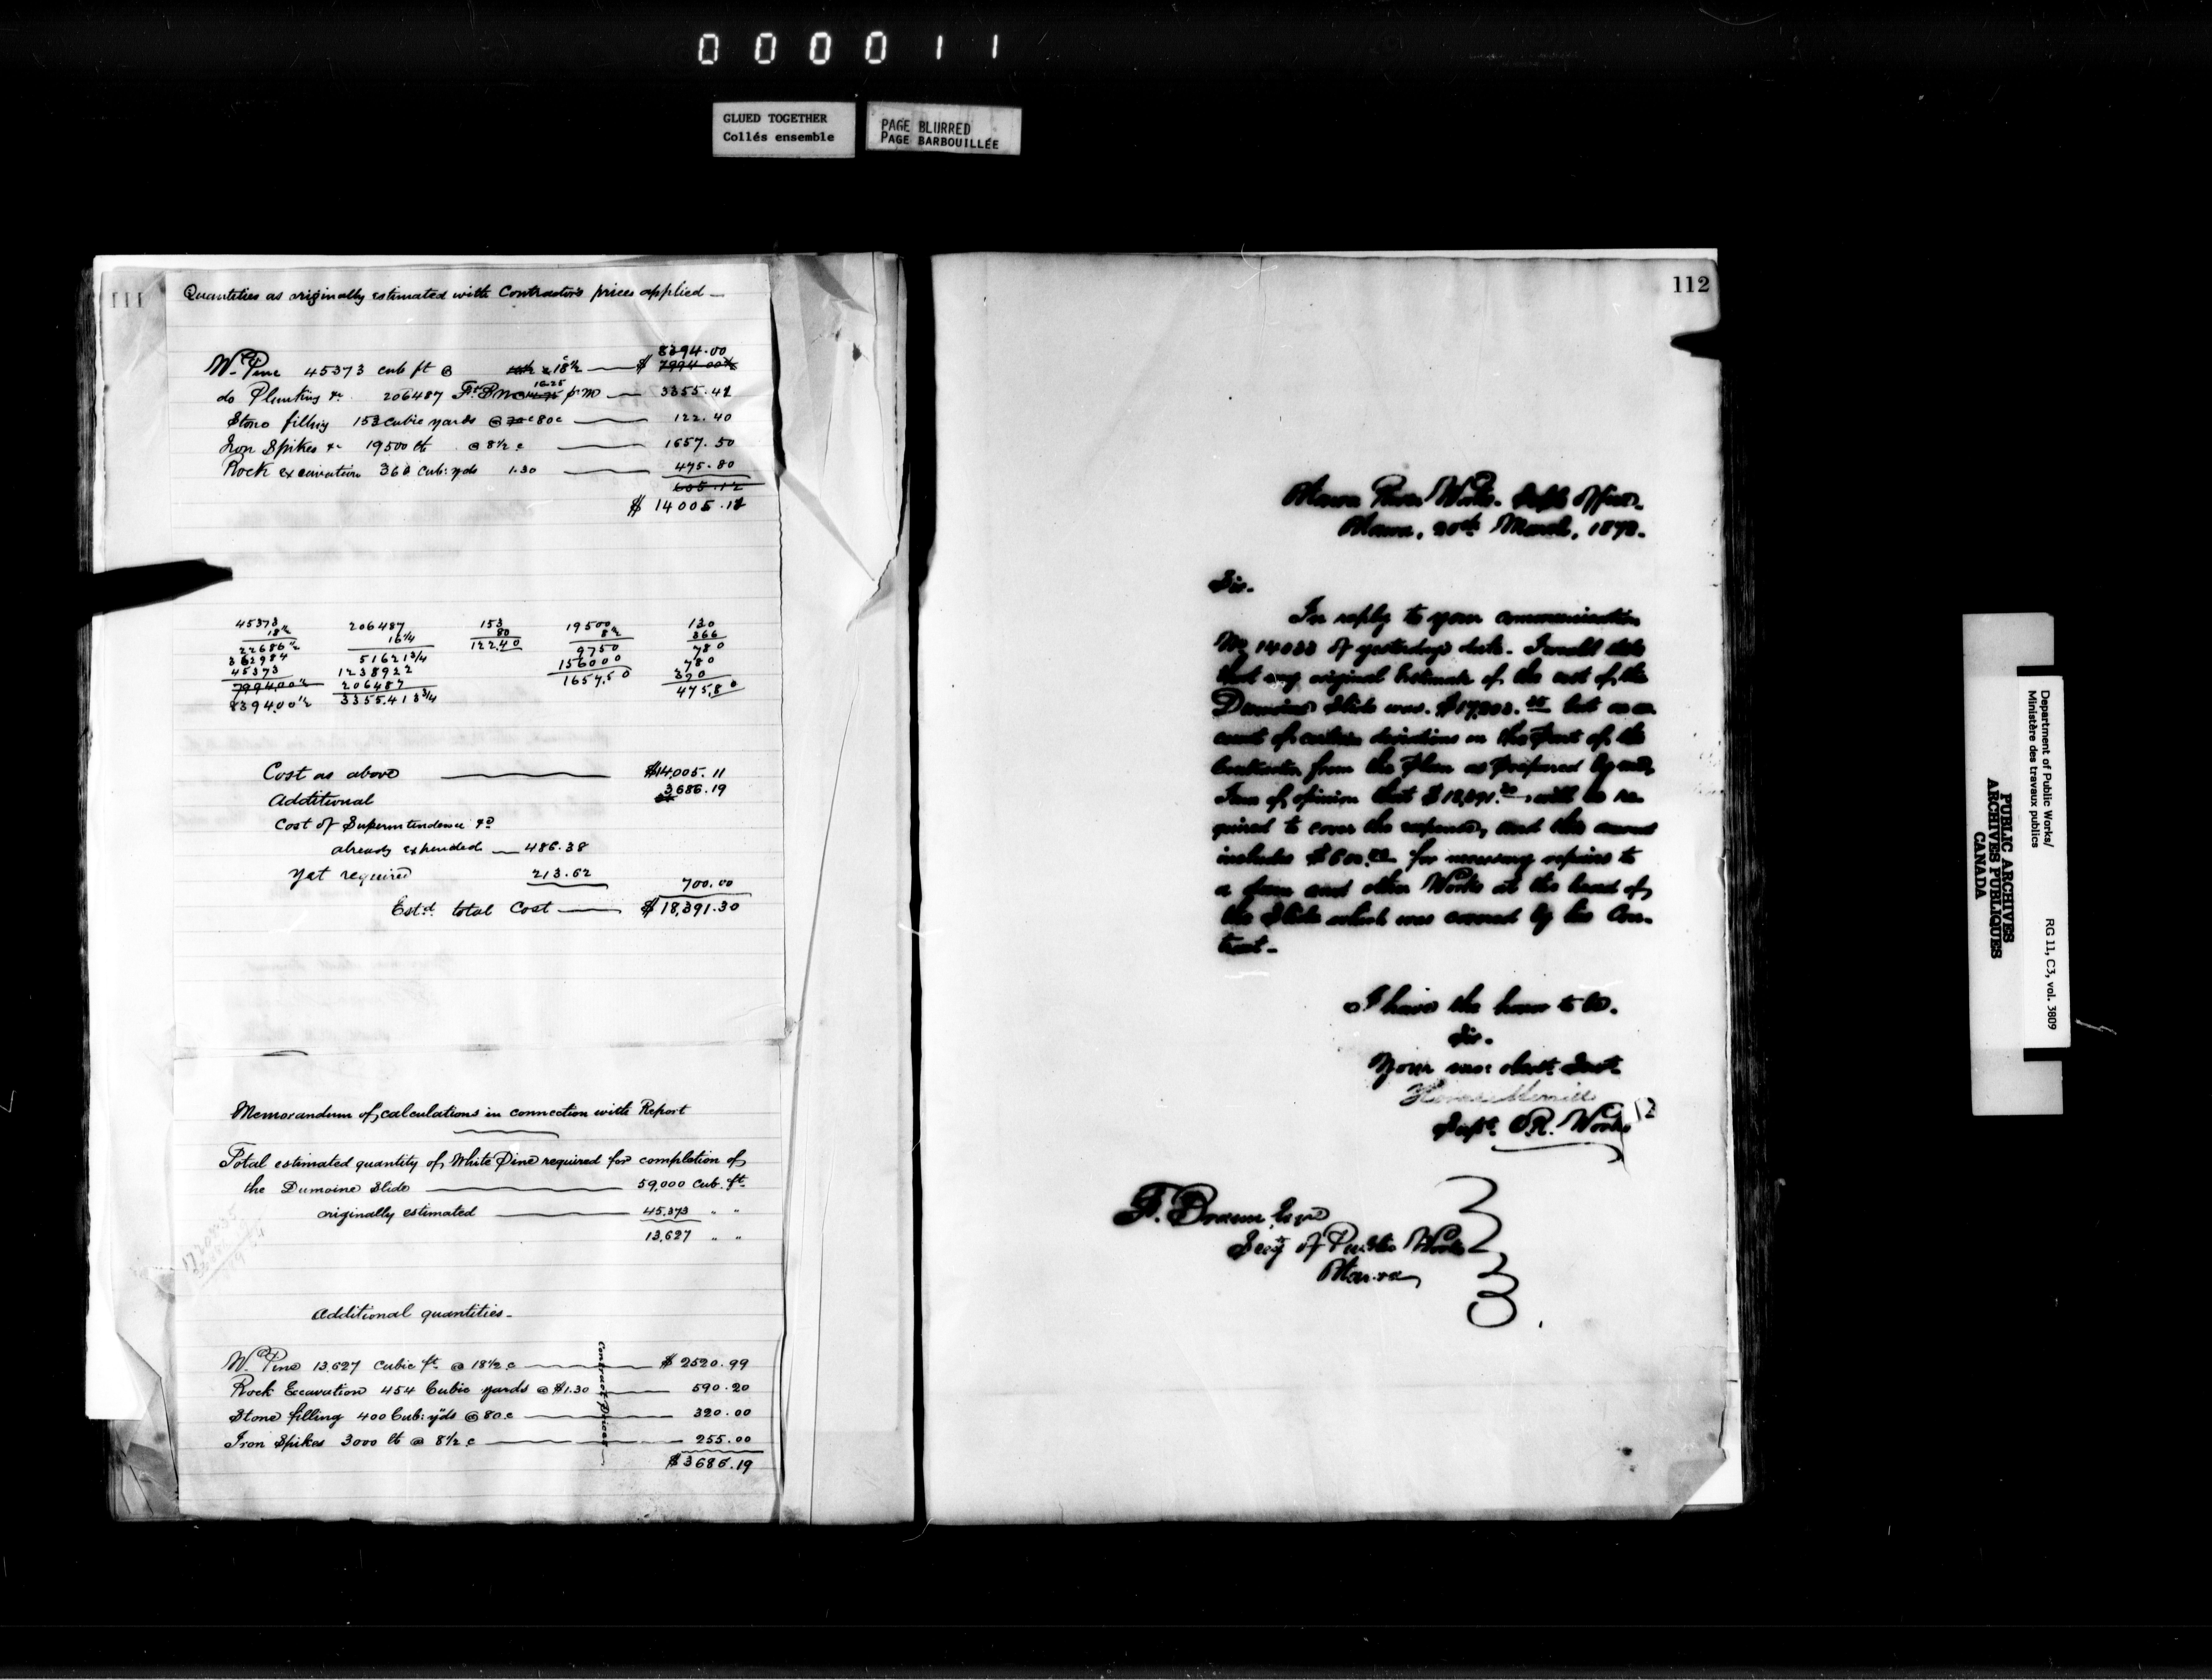 000011
GLUED TOGETHER
Collés ensemble
PAGE BLURRED
PAGE BARBOUILLÉE
111
Quantities as originally estimated with Contractor's prices applied —
8394.00
W. Pine 45373 cub ft @ 18½ — $ 7994 00½
16.25
do Planking &c 206487 Ft B M p. M — 3355.42
Stone filling 153 cubic yards @ 80c — 122.40
Iron Spikes &c 19500 lb @ 8½ c — 1657.50
Rock excavation 366 cub: yds 1.30 — 475.80
605.12
$ 14005.12
45373 206487 153 19500 130
18½ 16¼ 80 8½ 366
22686½ 51621¾ 122.40 9750 780
362984 1238922 156000 780
45373 206487 1657.50 390
7994.00½ 3355.413¾ 475.80
8394.00½
Cost as above — $14,005.11
Additional 3686.19
Cost of Superintendence &c
already expended — 486.38
Yet required 213.62 700.00
Estd. total Cost — $18,391.30
Memorandum of calculations in connection with Report
Total estimated quantity of White Pine required for completion of
the Dumoine Slide — 59,000 cub. ft.
originally estimated — 45,373 " "
13,627 " "
Additional quantities —
W. Pine 13,627 Cubic ft. @ 18½ c — $ 2520.99
Rock Excavation 454 Cubic yards @ $1.30 — 590.20
Stone filling 400 Cub: yds @ 80 c — 320.00
Iron Spikes 3000 lb @ 8½ c — 255.00
$ 3686.19
Contract Prices
112
Ottawa River Works. Supts Office.
Ottawa, 20th March, 1872.
Sir.
In reply to your communication
No 14033 of yesterday's date. I would state
that my original Estimate of the cost of the
Dumoine Slide was. but on ac
count of certain deviations on the part of the
Contractor from the Plan as prepared by me,
I am of opinion that will be re-
quired to cover the expense, and this amount
includes $600.00 for necessary repairs to
a and other Works at the head of
the Slide which was covered by his Con-
tract —
I have the honor to be.
Sir.
Your mo: obedt. Servt.
Horace Merrill
Supt. O.R. Works
12
F. Braun Esqre
Secy of Public Works
Ottawa
Department of Public Works/
Ministère des travaux publics
RG 11, C3, vol. 3809
PUBLIC ARCHIVES
ARCHIVES PUBLIQUES
CANADA